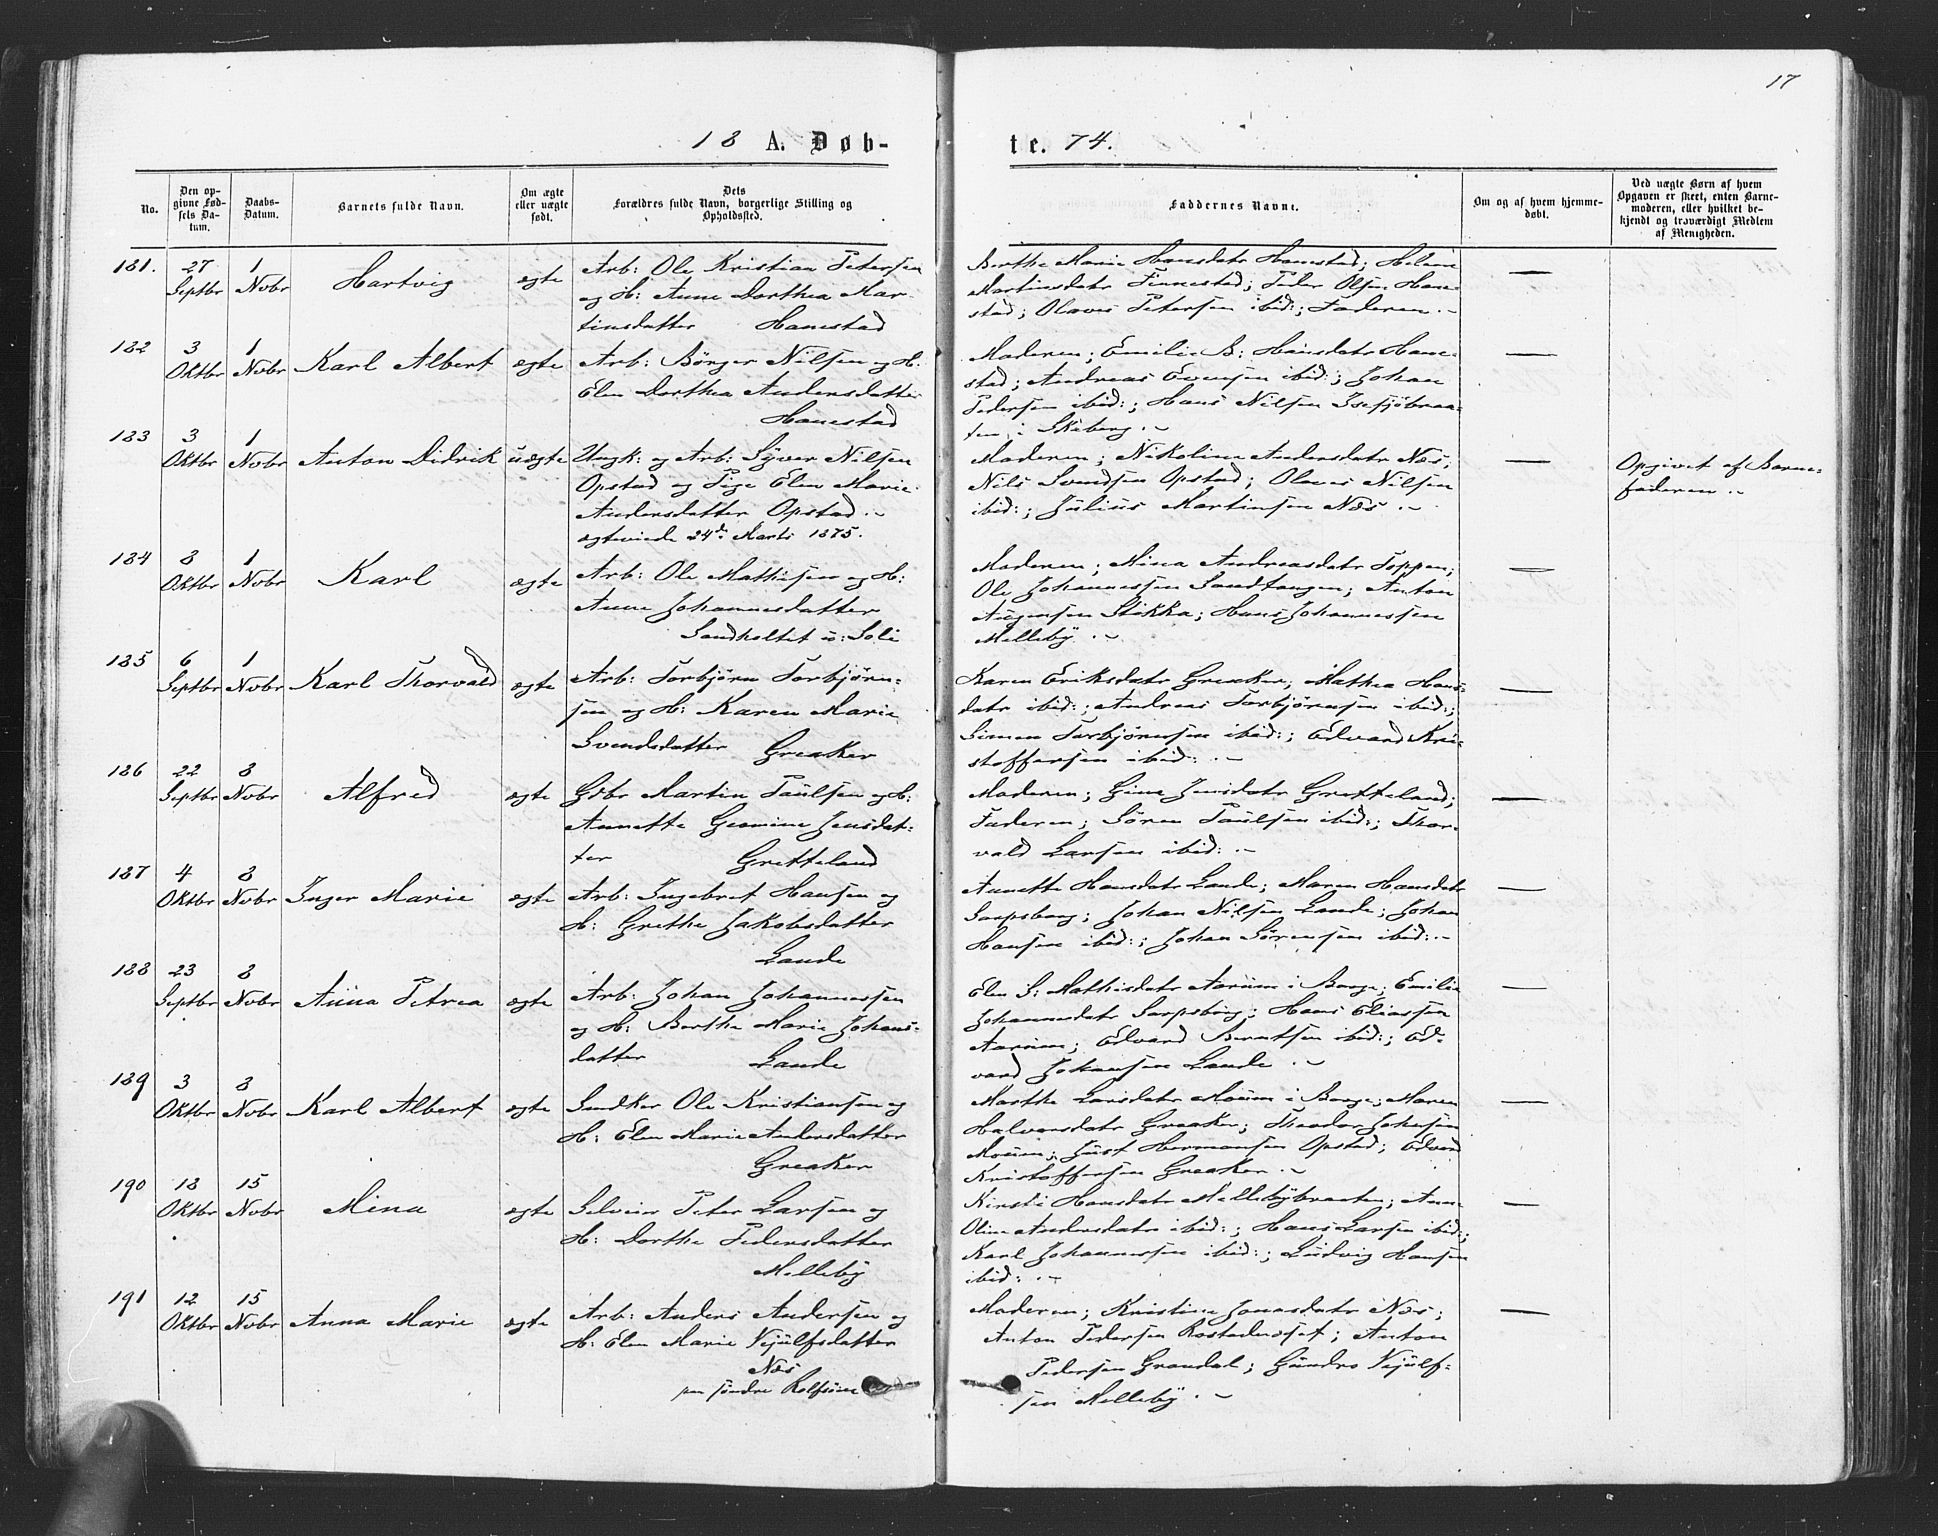 17
18 A. Døb-
te. 74.
No.
Den op-
givne Fød-
sels Da-
tum.
Daabs-
Datum.
Barnets fulde Navn.
Om ægte
eller uægte
født.
Dets
Forældres fulde Navn, borgerlige Stilling og
Opholdssted.
Faddernes Navne.
Om og af hvem hjemme-
døbt.
Ved uægte Børn af hvem
Opgaven er skeet, enten Barne-
moderen, eller hvilket be-
kjendt og troværdigt Medlem
af Menigheden.
181. 27 Septbr 1 Novbr Hartvig ægte
Arb: Ole Kristian Petersen
og H: Anne Dorthea Mar-
tinsdatter Hanestad
Berthe Marie Hansdatr Hanestad; Helene
Martinsdatr Finnestad; Peder Olsen Hane-
stad; Olaves Petersen ibid:; Faderen .-
—
182 3 Oktbr 1 Novbr Karl Albert ægte
Arb: Börger Nilsen og H.
Elen Dorthea Andersdatter
Hanestad
Moderen; Emilie B: Hansdatr Hane-
stad; Andreas Evensen ibid:; Johan
Pedersen ibid:; Hans Nilsen Isefjöbraa-
ten i Skeberg .-
—
183 3 Oktbr 1 Novbr Anton Didrik uægte
Ungk: og Arb: Syver Nilsen
Opstad og Pige Elen Marie
Andersdatter Opstad .-
ægteviede 24de Marts 1875.
Moderen; Nikoline Andersdatr Næs;
Nils Svendsen Opstad; Olaves Nilsen
ibid:; Julius Martinsen Næs .-
—
Opgivet af Barne-
faderen .-
184 8 Oktbr 1 Novbr Karl ægte
Arb: Ole Mathisen og H:
Anne Johannesdatter
Sandholtet u: Soli
Moderen; Mina Andreasdatr Toppen;
Ole Johannessen Sandtangen; Anton
Augensen Stikka; Hans Johannessen
Melleby .-
—
185 6 Septbr 1 Novbr Karl Thorvald ægte
Arb: Torbjörn Torbjörn-
sen og H: Karen Marie
Svendsdatter Greaker
Karen Eriksdatr Greaker; Mathea Hans-
datr ibid:; Andreas Torbjörnsen ibid:;
Simen Torbjörnsen ibid:; Edvard Kri-
stoffersen ibid: .-
—
186 22 Septbr 8 Novbr Alfred ægte
Gdbr Martin Paulsen og H:
Annette Jensdat-
ter Gretteland
Moderen; Jensdatr Gretteland;
Faderen; Sören Paulsen ibid:; Thor-
vald Larsen ibid: .-
—
187 4 Oktbr 8 Novbr Inger Marie ægte
Arb: Ingebret Hansen og
H: Grethe Jakobsdatter
Lande
Annette Hansdatr Lande; Maren Hansdatr
Sarpsborg; Johan Nilsen Lande; Johan
Hansen ibid:; Johan Sörensen ibid: .-
—
188 23 Septbr 8 Novbr Anna Petrea ægte
Arb: Johan Johannessen
og H: Berthe Marie Johans-
datter Lande
Elen S: Mathisdatr Aarum i Borge; Emilie
Johannesdatr Sarpsborg; Hans Eliassen
Aarum; Edvard Berntsen ibid:; Ed-
vard Johansen Lande .-
—
189 3 Oktbr 8 Novbr Karl Albert ægte
Smdker Ole Kristiansen og
H: Elen Marie Andersdatter
Greaker
Marthe Larsdatr Moum i Borge; Maren
Halvorsdatr Greaker; Theodor Johnsen
Moum; Just Hermansen Opstad; Edvard
Kristoffersen Greaker .-
—
190 18 Oktbr 15 Novbr Mina ægte
Selveier Peter Larsen og
H: Dorthe Pedersdatter
Melleby
Kirsti Hansdatr Mellebybraaten; Ann-
Oline Andersdatr ibid:; Hans Larsen ibid:;
Karl Johannessen ibid:; Ludvig Hansen
ibid: .-
—
191 12 Oktbr 15 Novbr Anna Marie ægte
Arb: Anders Andersen og
H: Elen Marie Vejulfsdatter
Næs
paa söndre Rolfsöen
Moderen; Kristine Jonasdatr Næs;
Anton Pedersen Rostadusset; Anton
Pedersen Grøndal; Gundro Vejulf-
sen Melleby .-
—